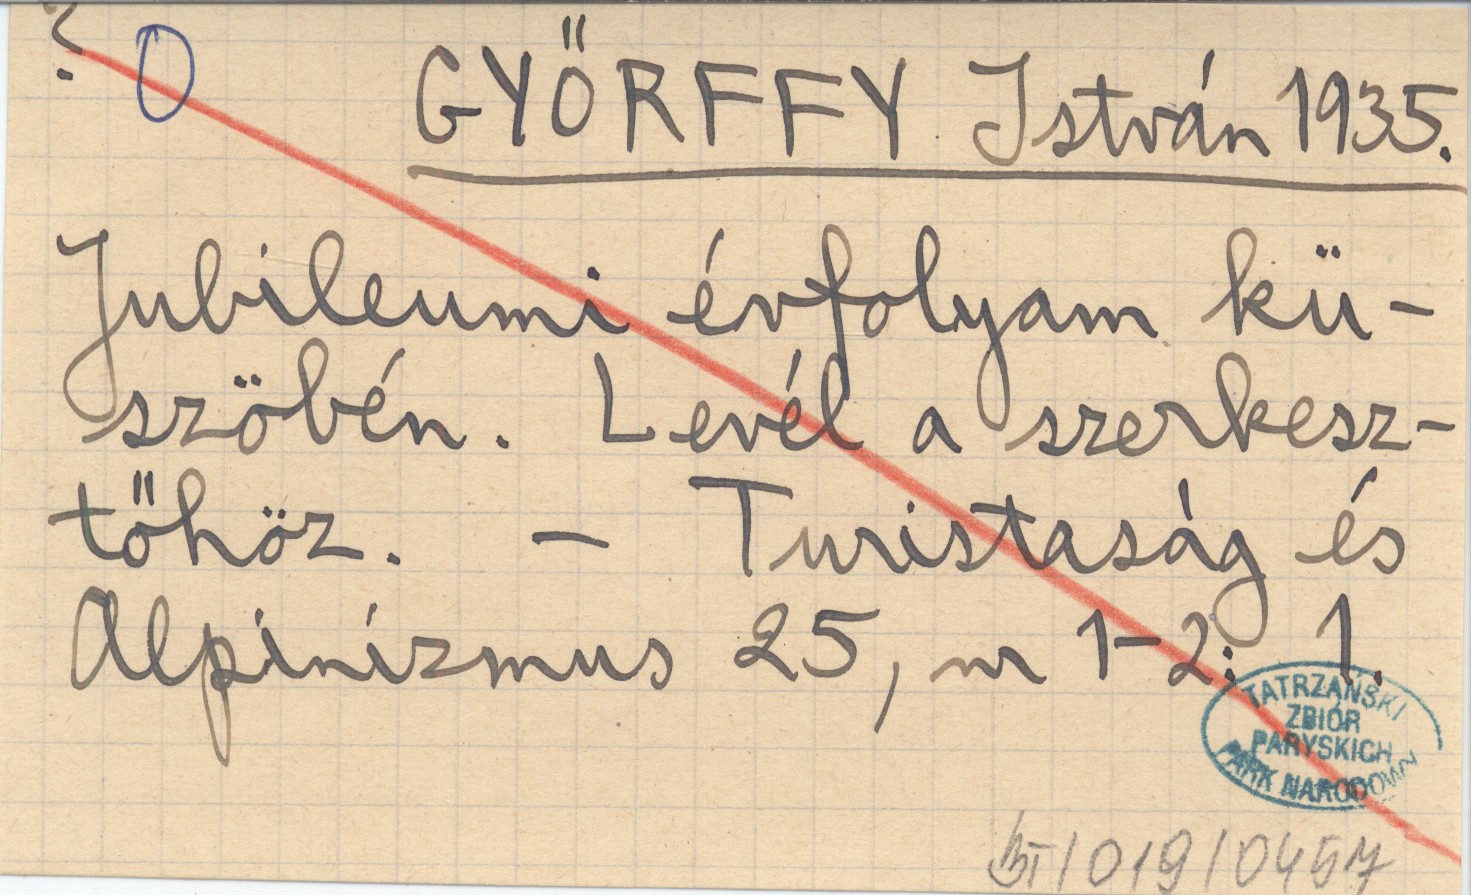 ?
GYŐRFFY István 1935.
Jubileumi évfolyam kü-
szöbén. Levél a szerkesz-
tőhöz. – Turistaság és
Alpinizmus 25, nr 1–2: 1.
TATRZAŃSKI
ZBIÓR
PARYSKICH
PARK NARODOWY
BT/019/0457